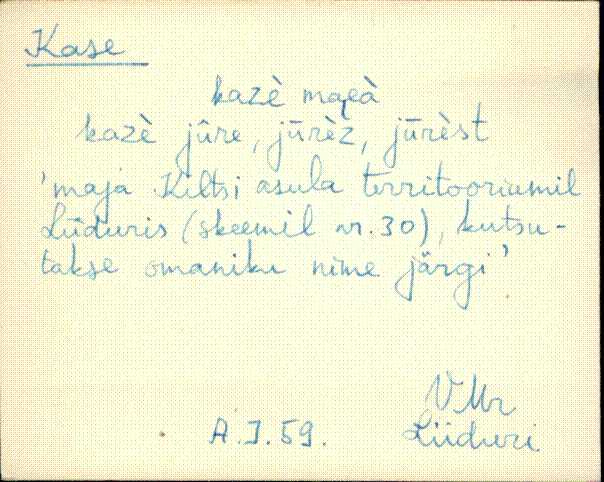 Kase
kazè maeà
kazè jūre, jūrèz, jūrèst
'maja Kiltsi asula territooriumil
Lüduris (skeemil nr. 30), kutsu-
takse omaniku nime järgi'
VMr
A.J.59. Lüduri